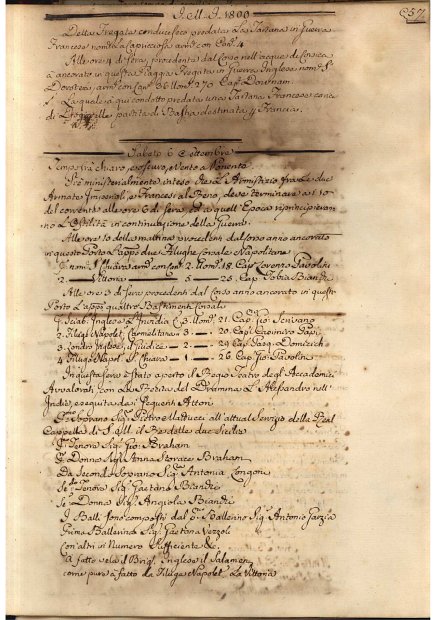 J. M. J. 1800
257
Detta Fregata condusse predata La Tartana in Guerra
Francese nomta La Capucciosa armta con Cani. 4
Alle ore 4 di sera, procedente dal Corso nell'acque di Corsica
è ancorato in questa Piaggia Fregata in Guerra Inglese nomta S.
Dorotea, armta con Cani 36 Uomi 270 Cap.
La quale à qui condotto predata una Tartana Francese carica
di partita di Bastia destinata p Francia.
Sabato 6 Settembre
Tempo stà chiaro, e oscuro, e Vento a Ponente
Si è ministerialmente inteso che L'Armistizio fra Le due
Armate Imperiali, e Francesi al Reno, deve terminare a 10
del corrente alle ore 6 di sera, ed a quell'Epoca si principieran
no L'Ostilità in continuazione della Guerra
Alle ore 10 della mattina procedenti dal corso anno ancorato
in questo Porto L'appo due Filughe Corsale Napolitane
S. Chiara armta con Cani 2. Uomi 18. Cap. Lorenzo Pavolini
2. — Vittoria — 5 — 25. Cap. Tobia Bianchi
Alle ore 3 di sera procedenti dal Corso anno ancorato in questo
Porto L'appi quattro Bastimenti Corsali
Inglese L'Invidia C. 3 Uomi 21. Cap. Gio:
2. Filuga Napolet. Carmelitana — 3 — 20. Cap.
3. Inglese, il Giudice — 2 — 29 Cap. Pasq.
4. Filuga Napol. S. Chiara — 1 — 26. Cap. Gio: Pavolini
In questa sera è stato aperto il Regio Teatro degl'Accademici
Avvalorati con La Recita del Dramma L'Alesandro nell'
Indie, eseguita da i seguenti Attori
Po. Soprano Sigr. Pietro Mattucci all'attual Servizio della Real
Cappella di S. M. il Re delle due Sicilie
Po. Tenore Sigr. Gio: Braham
Pa. Donna Siga. Anna Storace Braham
Da Secondo Soprano Siga. Antonia Longoni
Sedo. Tenore Sigr. Gaetano Bianchi
Seda. Donna Siga. Angiola Bianchi
I Balli sono composti dal Po. Ballerino Sigr. Antonio
Prima Ballerina Siga. Gaetana Verzoli
Con altri in Numero sufficiente &c.
A fatto vela il Brigo. Inglese il
come pure à fatto La Filuga Napolet. La Vittoria